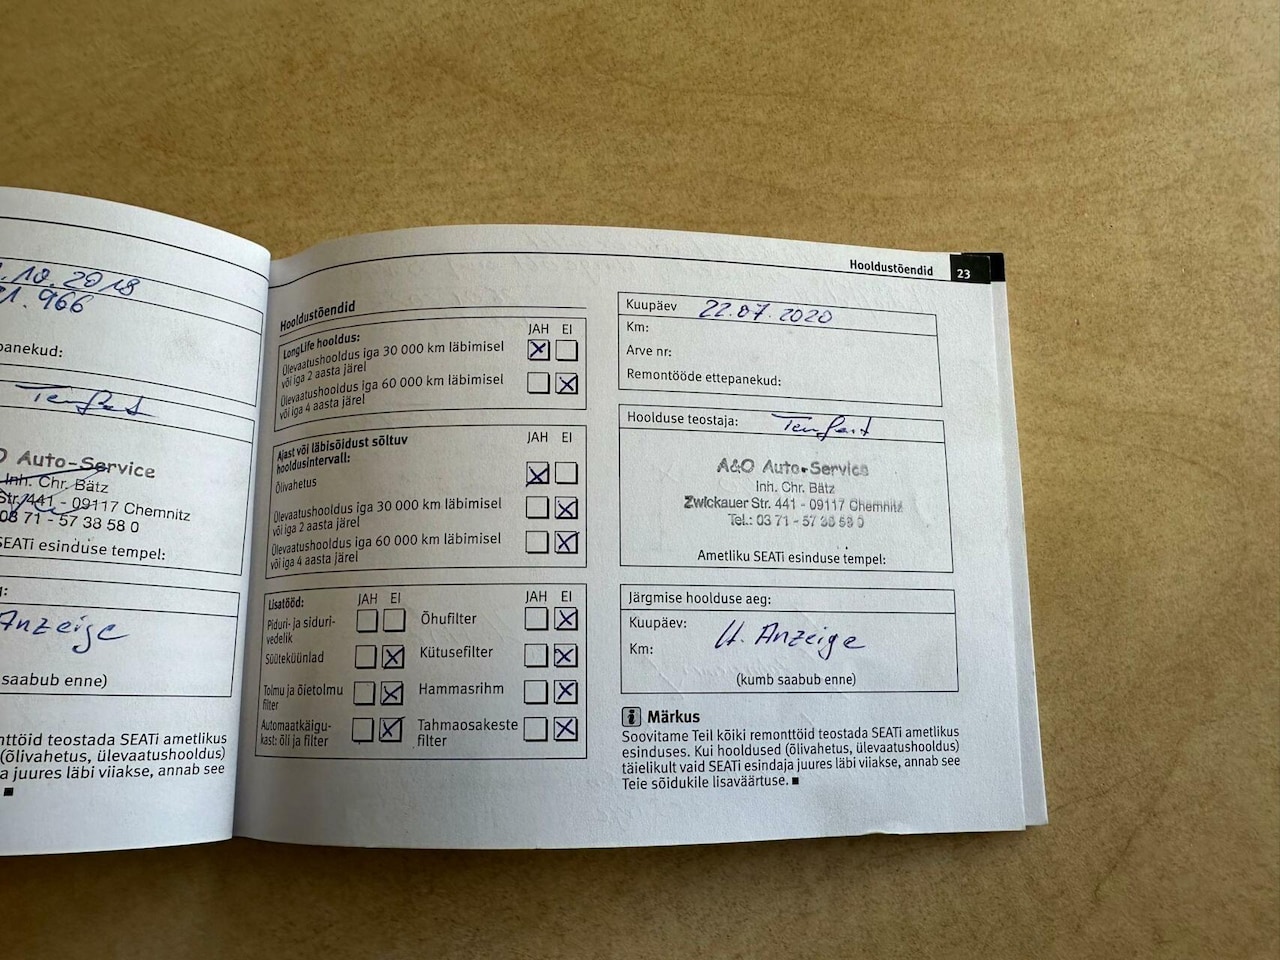 .10.2018
21.966
panekud:
Auto-Service
Inh. Chr. Bätz
Str. 441 - 09117 Chemnitz
03 71 - 57 38 58 0
SEATi esinduse tempel:
g:
Anzeige
saabub enne)
nttöid teostada SEATi ametlikus
(õlivahetus, ülevaatushooldus)
a juures läbi viiakse, annab see
Hooldustõendid 23
Hooldustõendid
LongLife hooldus: JAH EI
Ülevaatushooldus iga 30 000 km läbimisel
või iga 2 aasta järel
Ülevaatushooldus iga 60 000 km läbimisel
või iga 4 aasta järel
Ajast või läbisõidust sõltuv JAH EI
hooldusintervall:
Õlivahetus
Ülevaatushooldus iga 30 000 km läbimisel
või iga 2 aasta järel
Ülevaatushooldus iga 60 000 km läbimisel
või iga 4 aasta järel
Lisatööd: JAH EI JAH EI
Piduri- ja siduri-
vedelik
Õhufilter
Süüteküünlad
Kütusefilter
Tolmu ja õietolmu
filter
Hammasrihm
Automaatkäigu-
kast: õli ja filter
Tahmaosakeste
filter
Kuupäev 22.07.2020
Km:
Arve nr:
Remontööde ettepanekud:
Hoolduse teostaja:
A&O Auto-Service
Inh. Chr. Bätz
Zwickauer Str. 441 - 09117 Chemnitz
Tel.: 03 71 - 57 38 58 0
Ametliku SEATi esinduse tempel:
Järgmise hoolduse aeg:
Kuupäev:
Km:
lt. Anzeige
(kumb saabub enne)
i Märkus
Soovitame Teil kõiki remonttöid teostada SEATi ametlikus
esinduses. Kui hooldused (õlivahetus, ülevaatushooldus)
täielikult vaid SEATi esindaja juures läbi viiakse, annab see
Teie sõidukile lisaväärtuse.